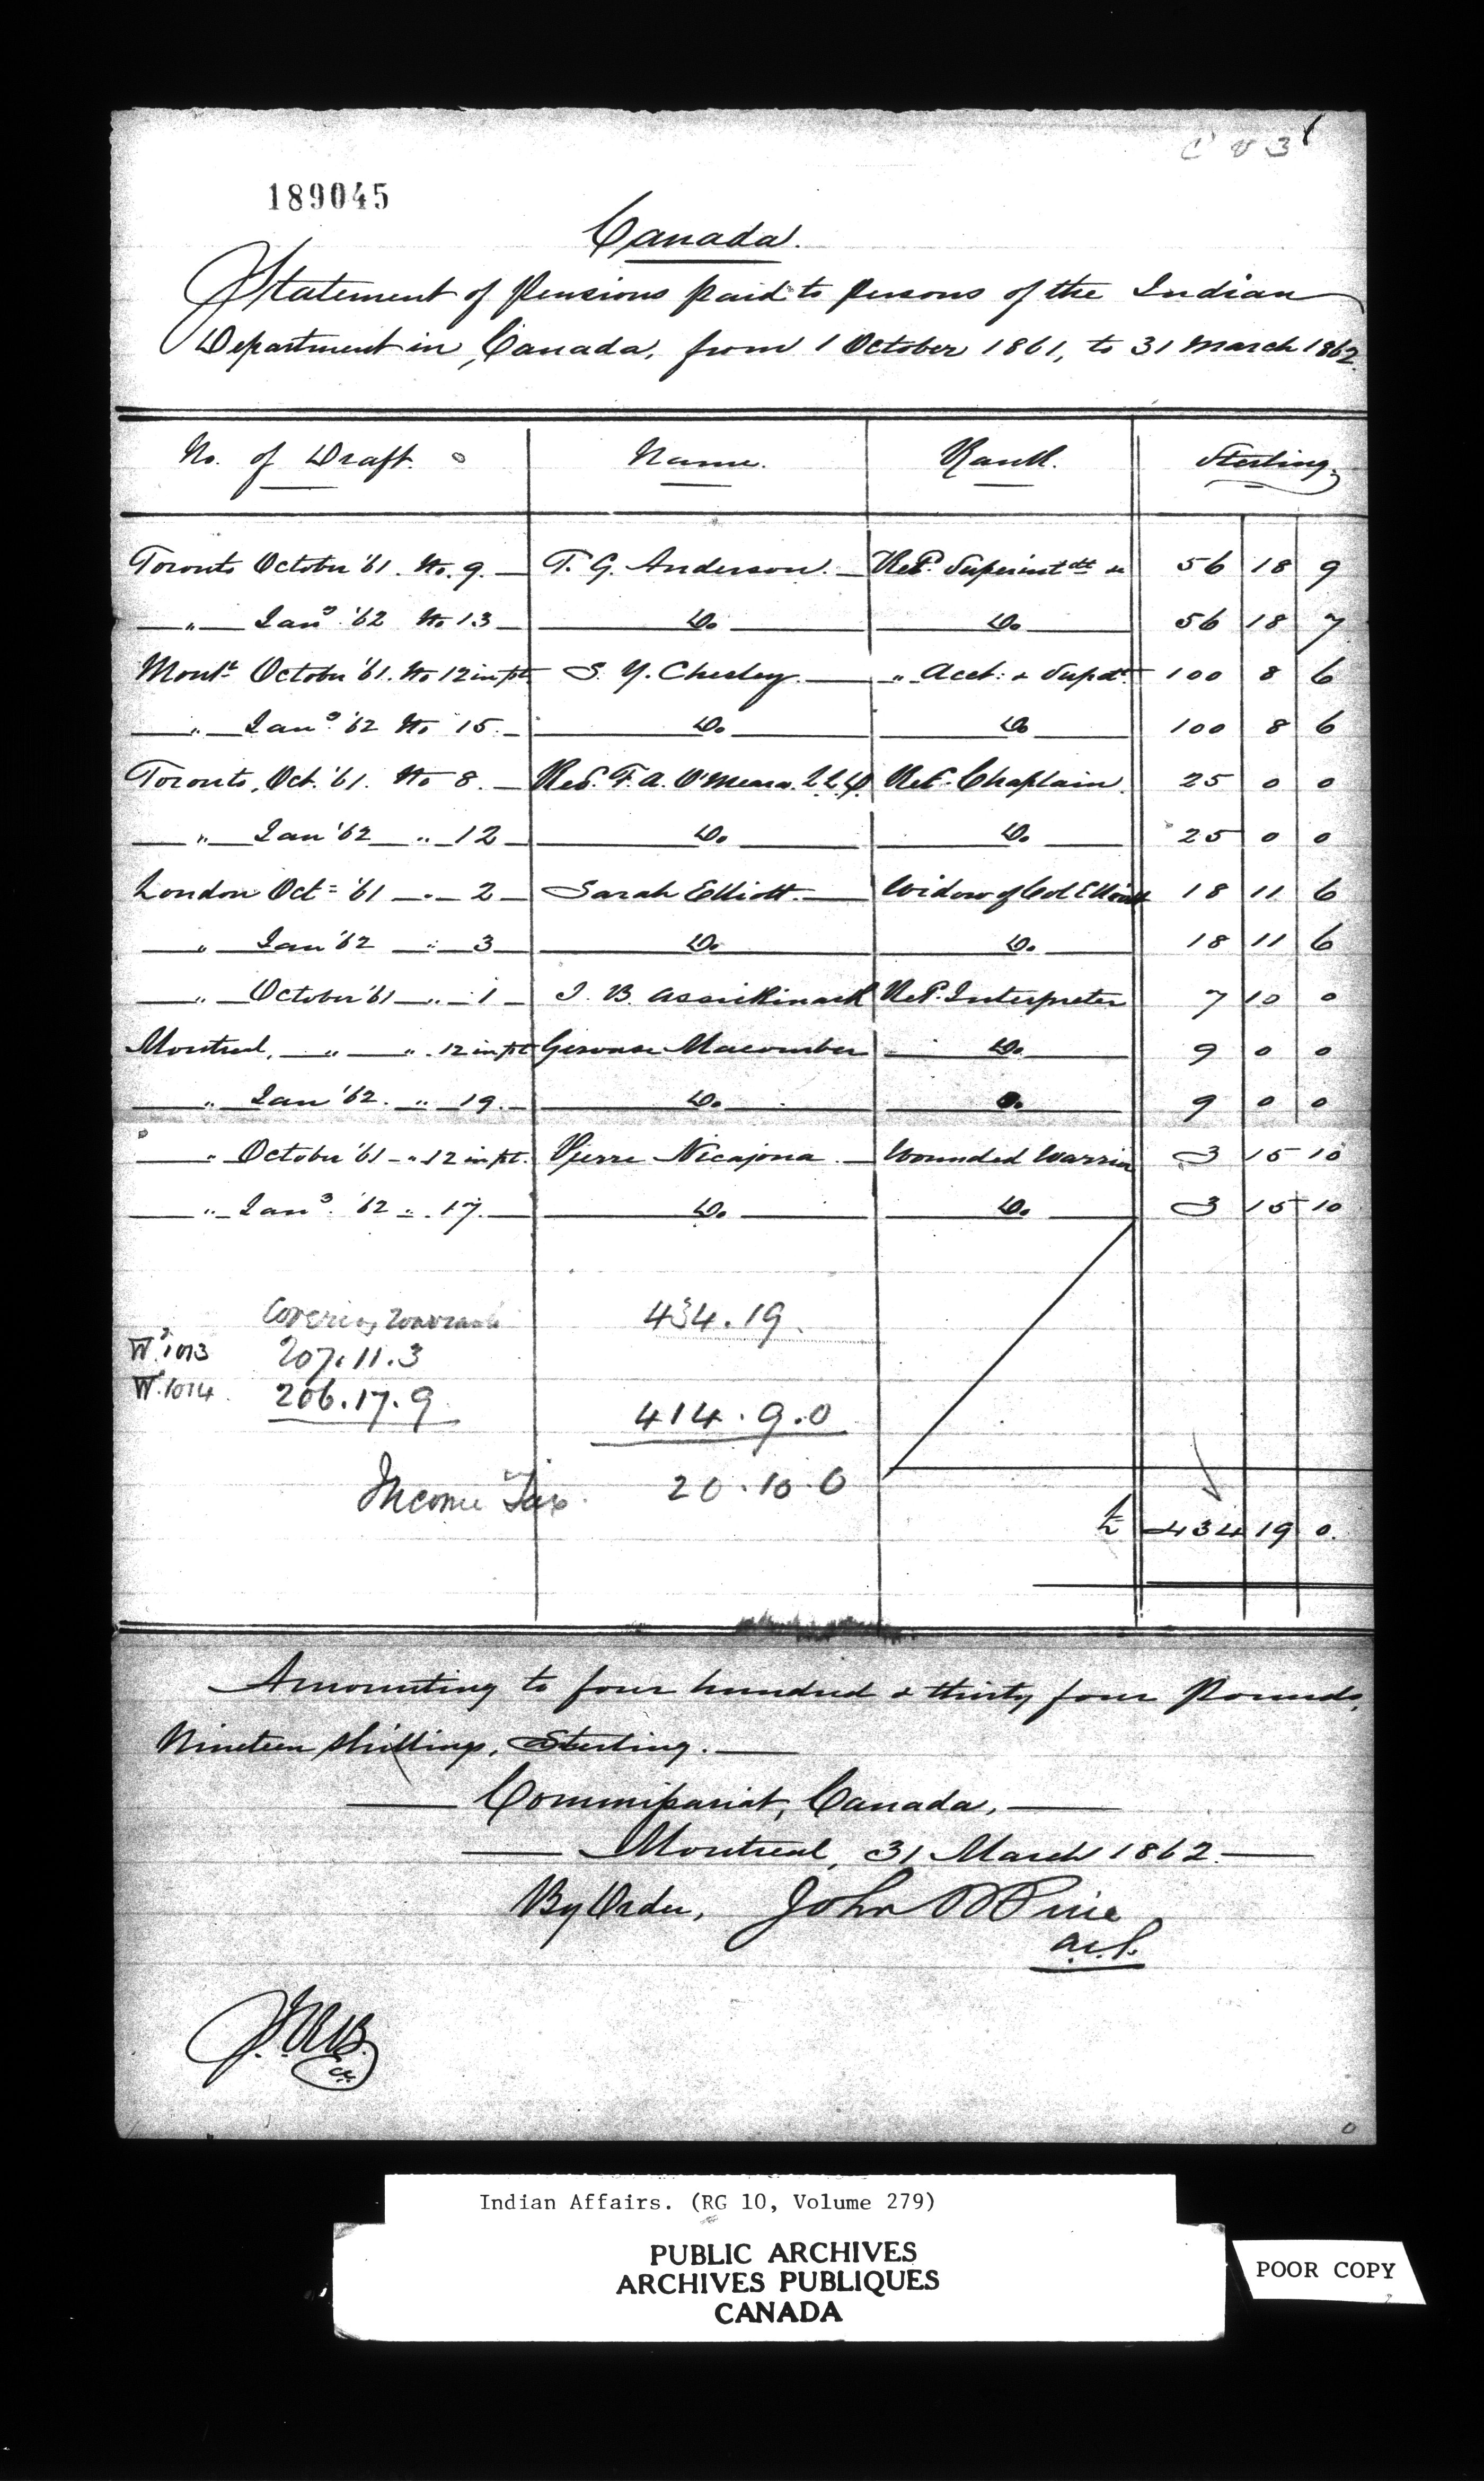 C V 3
189045
Canada.
Statement of Pensions paid to Persons of the Indian
Department in Canada, from 1 October 1861, to 31 March 1862.
No. of Draft. Name. Rank. Sterling.
Toronto October '61. No. 9. T. G. Anderson. Ret. Superintdt &c 56 18 9
" Jany. '62 No 13 Do. Do. 56 18 7
Montl. October '61. No 12 in pt. S. Y. Chesley. " Acct: & Supdt. 100 8 6
" Jany. '62 No 15. Do. Do 100 8 6
Toronto, Oct. '61. No 8. Revd. F. A. O'Meara. LLD Ret. Chaplain. 25 0 0
" Jan '62 " 12 Do. Do. 25 0 0
London Oct= '61 " 2 Sarah Elliott. Widow of Col Elliott 18 11 6
" Jan '62 " 3 Do. Do. 18 11 6
" October '61 " 1 J. B. Assickinack Ret. Interpreter 7 10 0
Montreal, " " . 12 in pt Gervase Macomber Do. 9 0 0
" Jan '62. " 19. Do. Do. 9 0 0
" October '61 " 12 in pt. Pierre Nicajona. Wounded Warrior 3 15 10
" Jany. '62 " 17. Do. Do. 3 15 10
Covering Warrants 434.19.
Wt. 1013 207.11.3
Wt. 1014. 206.17.9. 414.9.0
Income Tax. 20.10.0
£ 434 19 0.
Amounting to four hundred & thirty four Pounds,
Nineteen Shillings, Sterling.
Commissariat, Canada,
Montreal, 31 March 1862.
By Order, John Price
Indian Affairs. (RG 10, Volume 279)
PUBLIC ARCHIVES
ARCHIVES PUBLIQUES
CANADA
POOR COPY